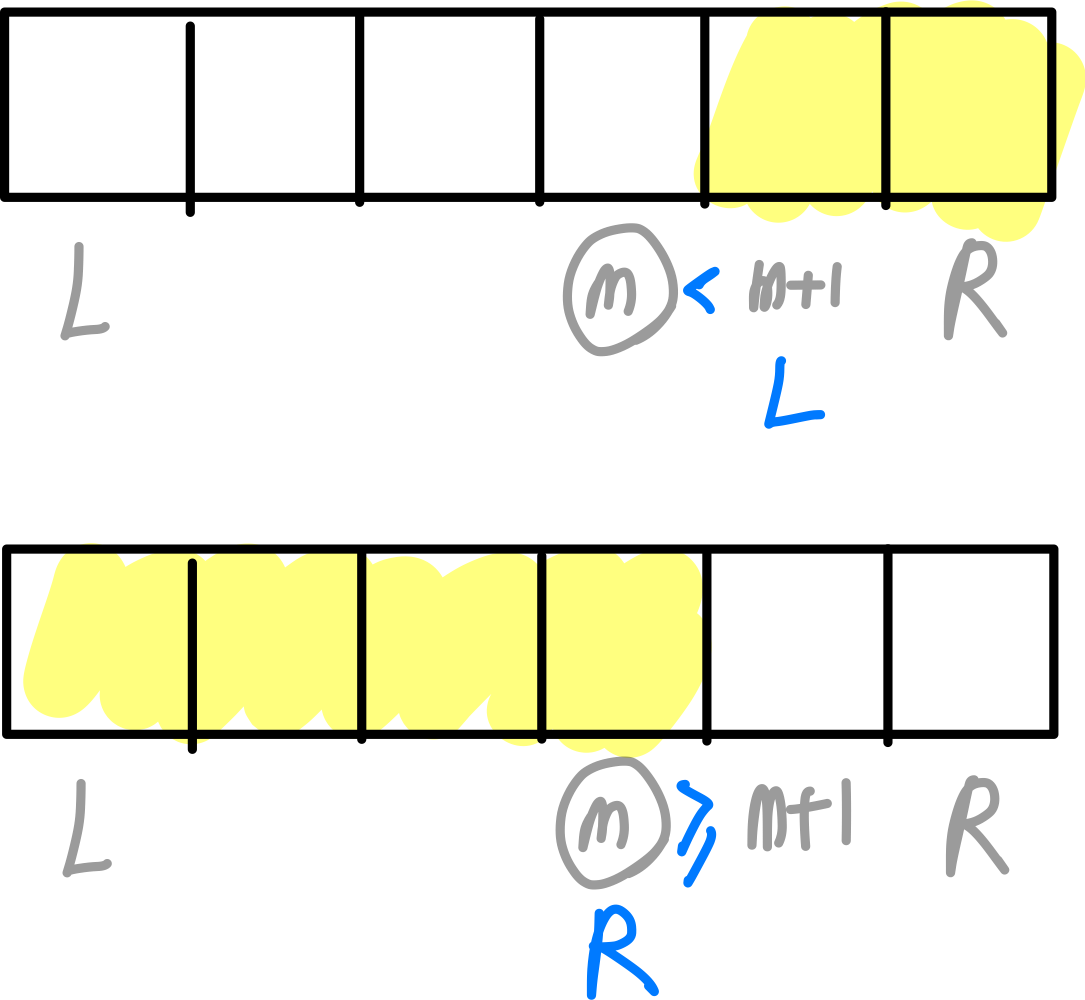 L m < m+1 R
L
L m ≥ m+1 R
R